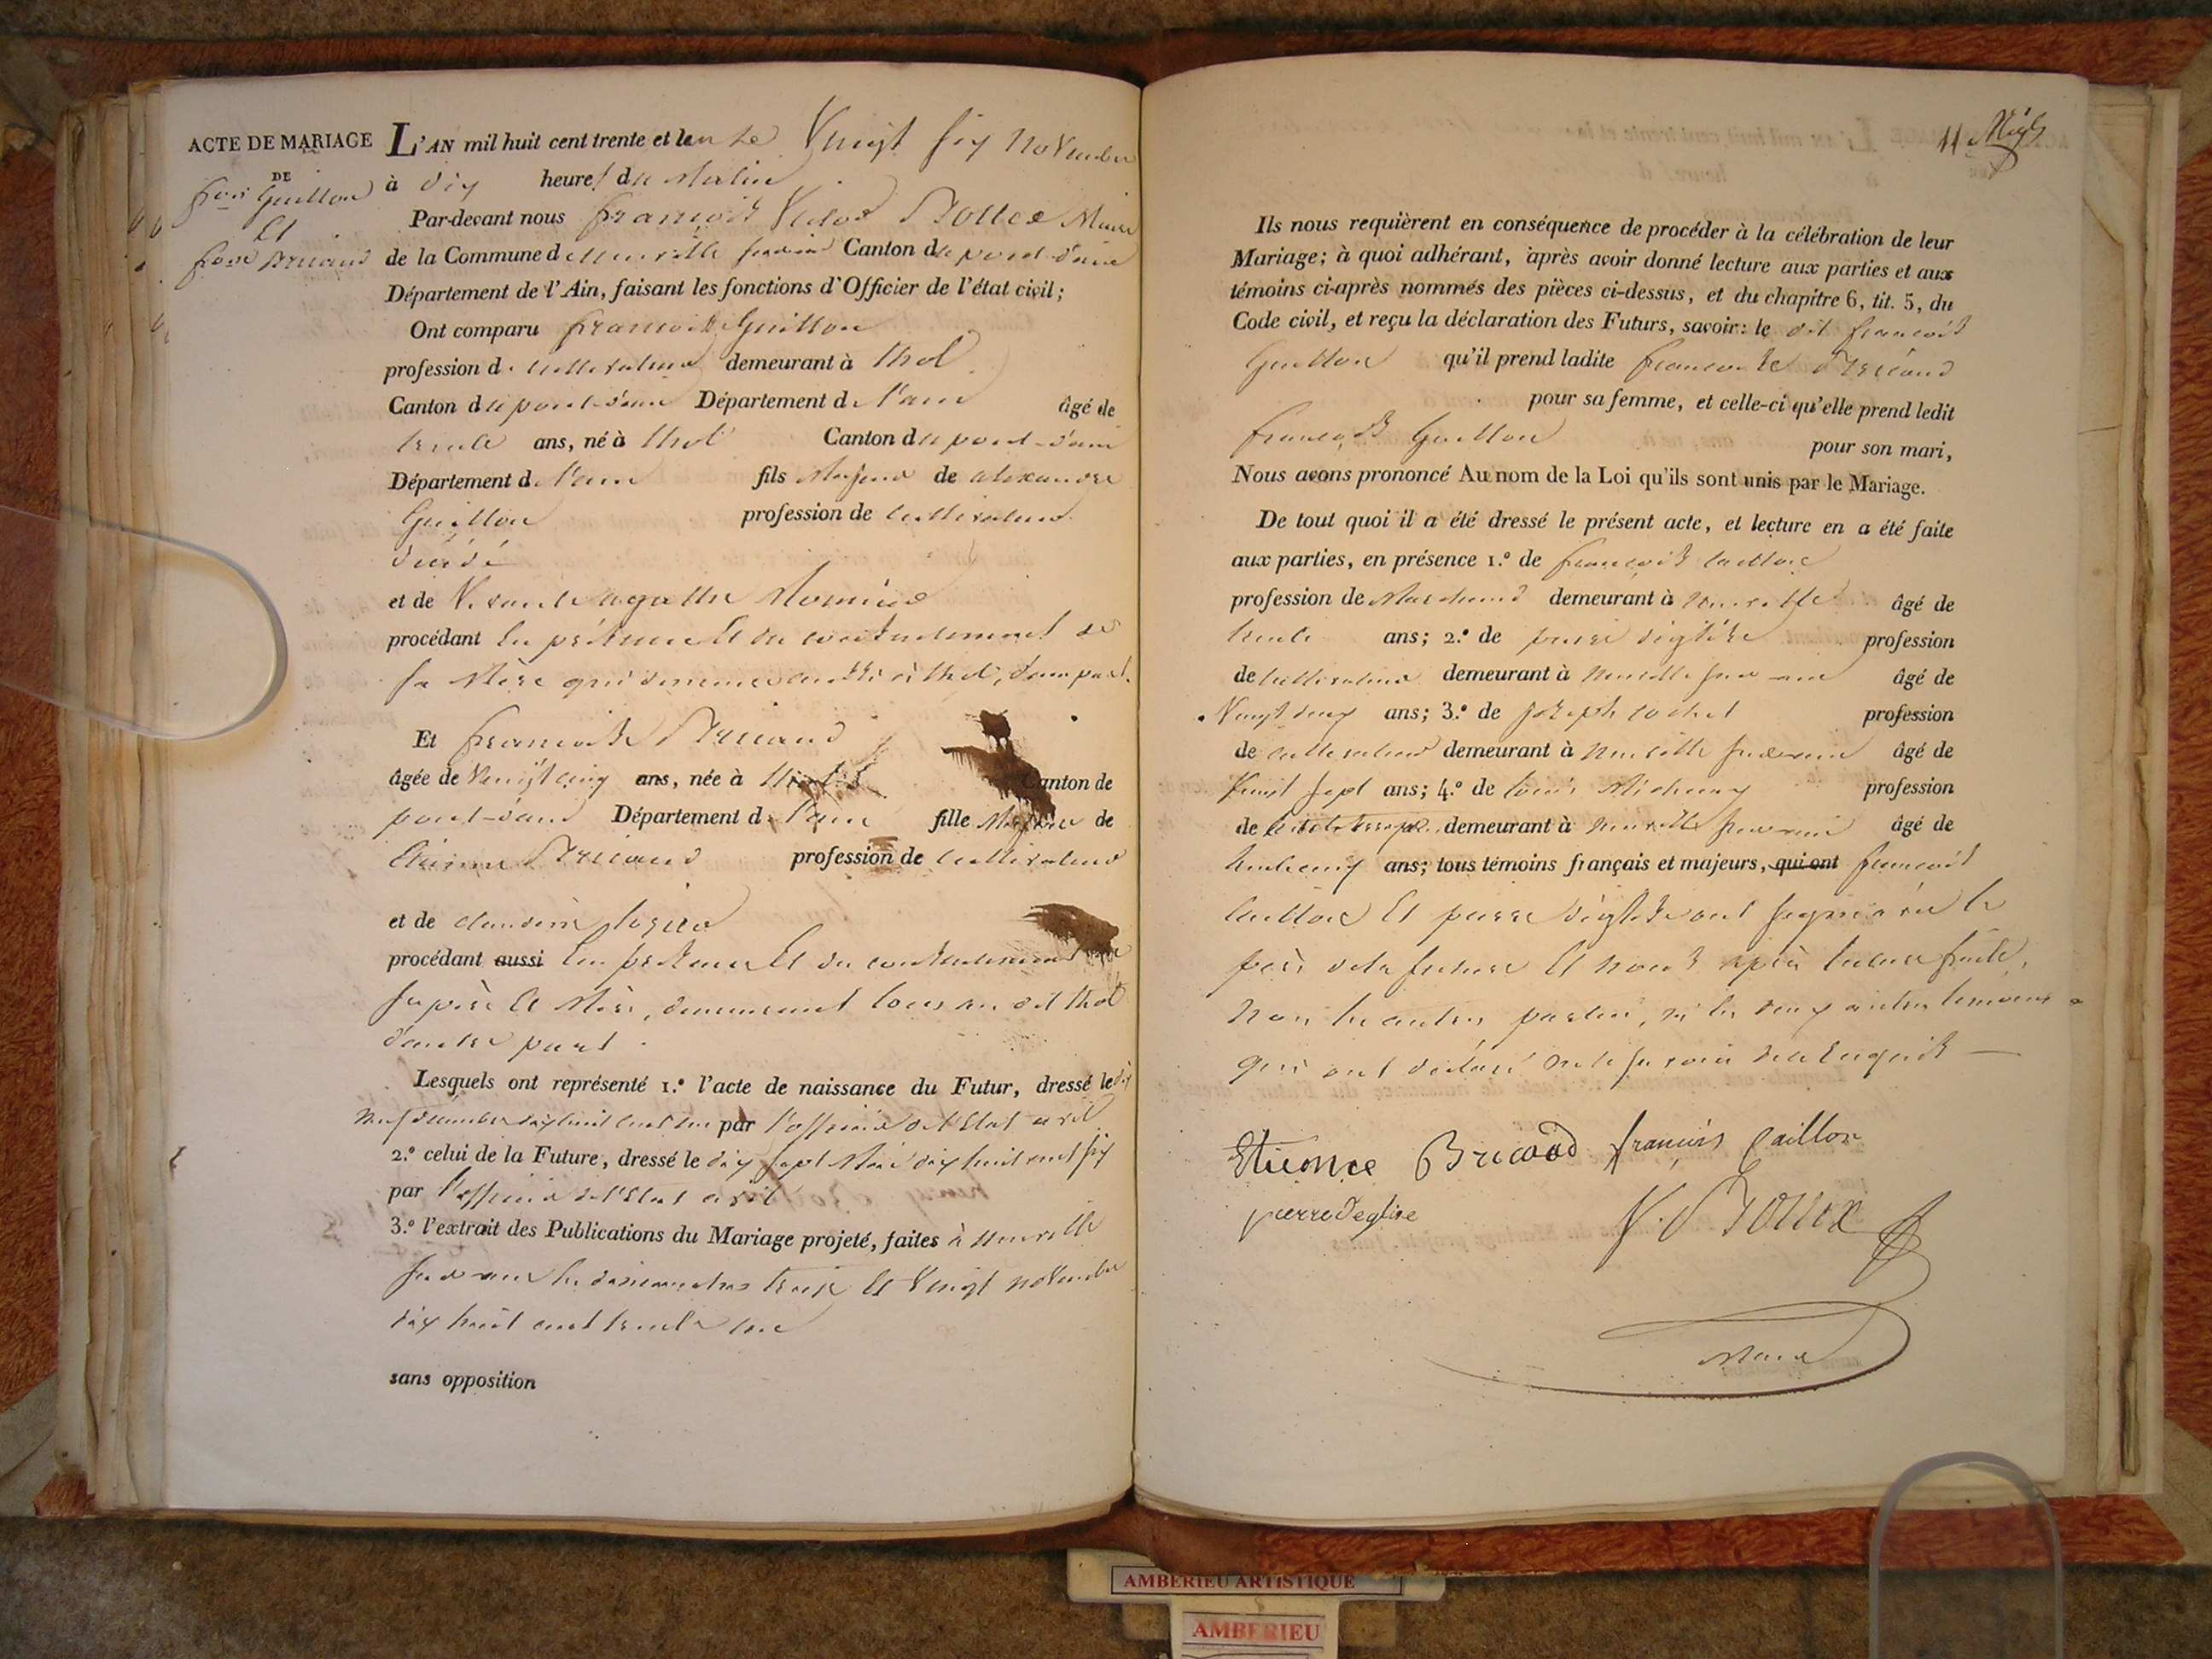 ACTE DE MARIAGE
DE
fçois Guillon
Et
fçoise Bricaud
L'AN mil huit cent trente et un le Vingt six novembre
à dix heures du Matin
Par-devant nous françois Victor Maire
de la Commune de neuville sur ain Canton de pont-d'ain
Département de l'Ain, faisant les fonctions d'Officier de l'état civil;
Ont comparu françois Guillon
profession de cultivateur demeurant à thol
Canton de pont-d'ain Département de l'ain âgé de
trente ans, né à thol Canton de pont-d'ain
Département de l'ain fils Majeur de alexandre
Guillon profession de cultivateur
décédé
et de Vivante agathe
procédant en présence et du consentement de
sa Mère qui demeure aussi à thol, d'une part.
Et françoise Bricaud
âgée de Vingt cinq ans, née à thol Canton de
pont-d'ain Département de l'ain fille Majeure de
Etienne Bricaud profession de cultivateur
et de claudine
procédant aussi en présence et du consentement de
ses père et Mère, demeurant tous au dit thol
d'autre part.
Lesquels ont représenté 1.º l'acte de naissance du Futur, dressé le dix
neuf décembre dix huit cent un par l'officier de l'état civil
2.º celui de la Future, dressé le dix sept Mai dix huit cent six
par l'officier de l'état civil
3.º l'extrait des Publications du Mariage projeté, faites à neuville
sur ain les dimanches treize et Vingt novembre
dix huit cent trente un
sans opposition
11e
Ils nous requièrent en conséquence de procéder à la célébration de leur
Mariage; à quoi adhérant, après avoir donné lecture aux parties et aux
témoins ci-après nommés des pièces ci-dessus, et du chapitre 6, tit. 5, du
Code civil, et reçu la déclaration des Futurs, savoir: le dit françois
Guillon qu'il prend ladite françoise Bricaud
pour sa femme, et celle-ci qu'elle prend ledit
françois Guillon pour son mari,
Nous avons prononcé Au nom de la Loi qu'ils sont unis par le Mariage.
De tout quoi il a été dressé le présent acte, et lecture en a été faite
aux parties, en présence 1.º de françois caillon
profession de Marchand demeurant à neuville âgé de
trente ans; 2.º de pierre déglise profession
de cultivateur demeurant à neuville sur ain âgé de
Vingt deux ans; 3.º de joseph cochet profession
de cultivateur demeurant à neuville sur ain âgé de
Vingt sept ans; 4.º de louis profession
de demeurant à neuville sur ain âgé de
trente cinq ans; tous témoins français et majeurs, qui ont françois
caillon et pierre déglise ont signé avec le
père de la future et nous après lecture faite,
non les autres parties, ni les deux autres témoins
qui ont déclaré ne le savoir de ce enquis
Etience Bricaod françois Caillon
pierre deglise
Maire
AMBERIEU ARTISTIQUE
AMBERIEU